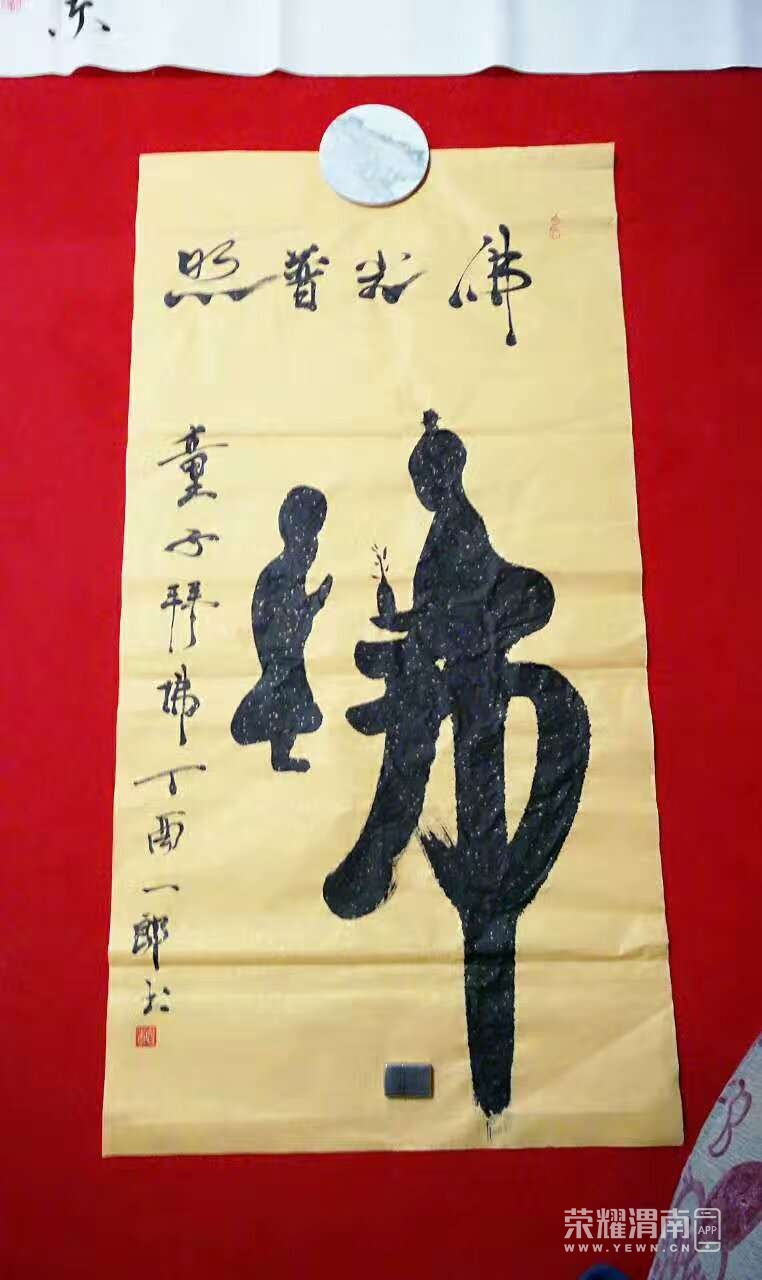 佛光普照
佛
童子拜佛丁酉一郎书
荣耀渭南APP
WWW.YEWN.CN